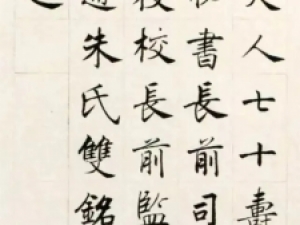 人七十壽
書長前司
校長前監
朱氏雙銘